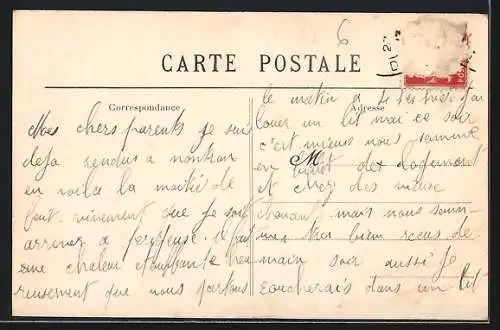 6
CARTE POSTALE
Correspondance
Adresse
Mes chers parents je sui
deja rendus a nontron
en voila la moitié de
fait. vivement que je soit
arriver a il fait
une chaleur etouffante heu
reusement que nous partons
le matin a
louer un lit moi ce soir
c'est mieux nous somme
en billet de logement
M
et chez des
mais nous somm
tres bien recus de
main soir aussi je
coucherais dans un lit